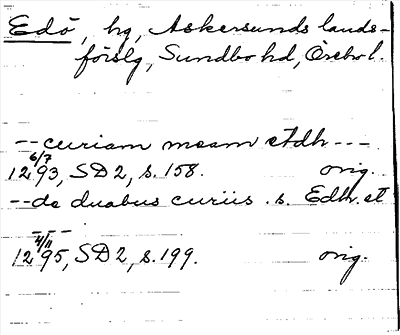 Edö, hg, Askersunds lands-
förslg, Sundbo hd, Örebro l.
-- curiam meam Ædh ---
12 6/7 93, SD 2, s. 158. orig.
-- de duabus curiis .s. Edh. et
----
12 4/11 95, SD 2, s. 199. orig.